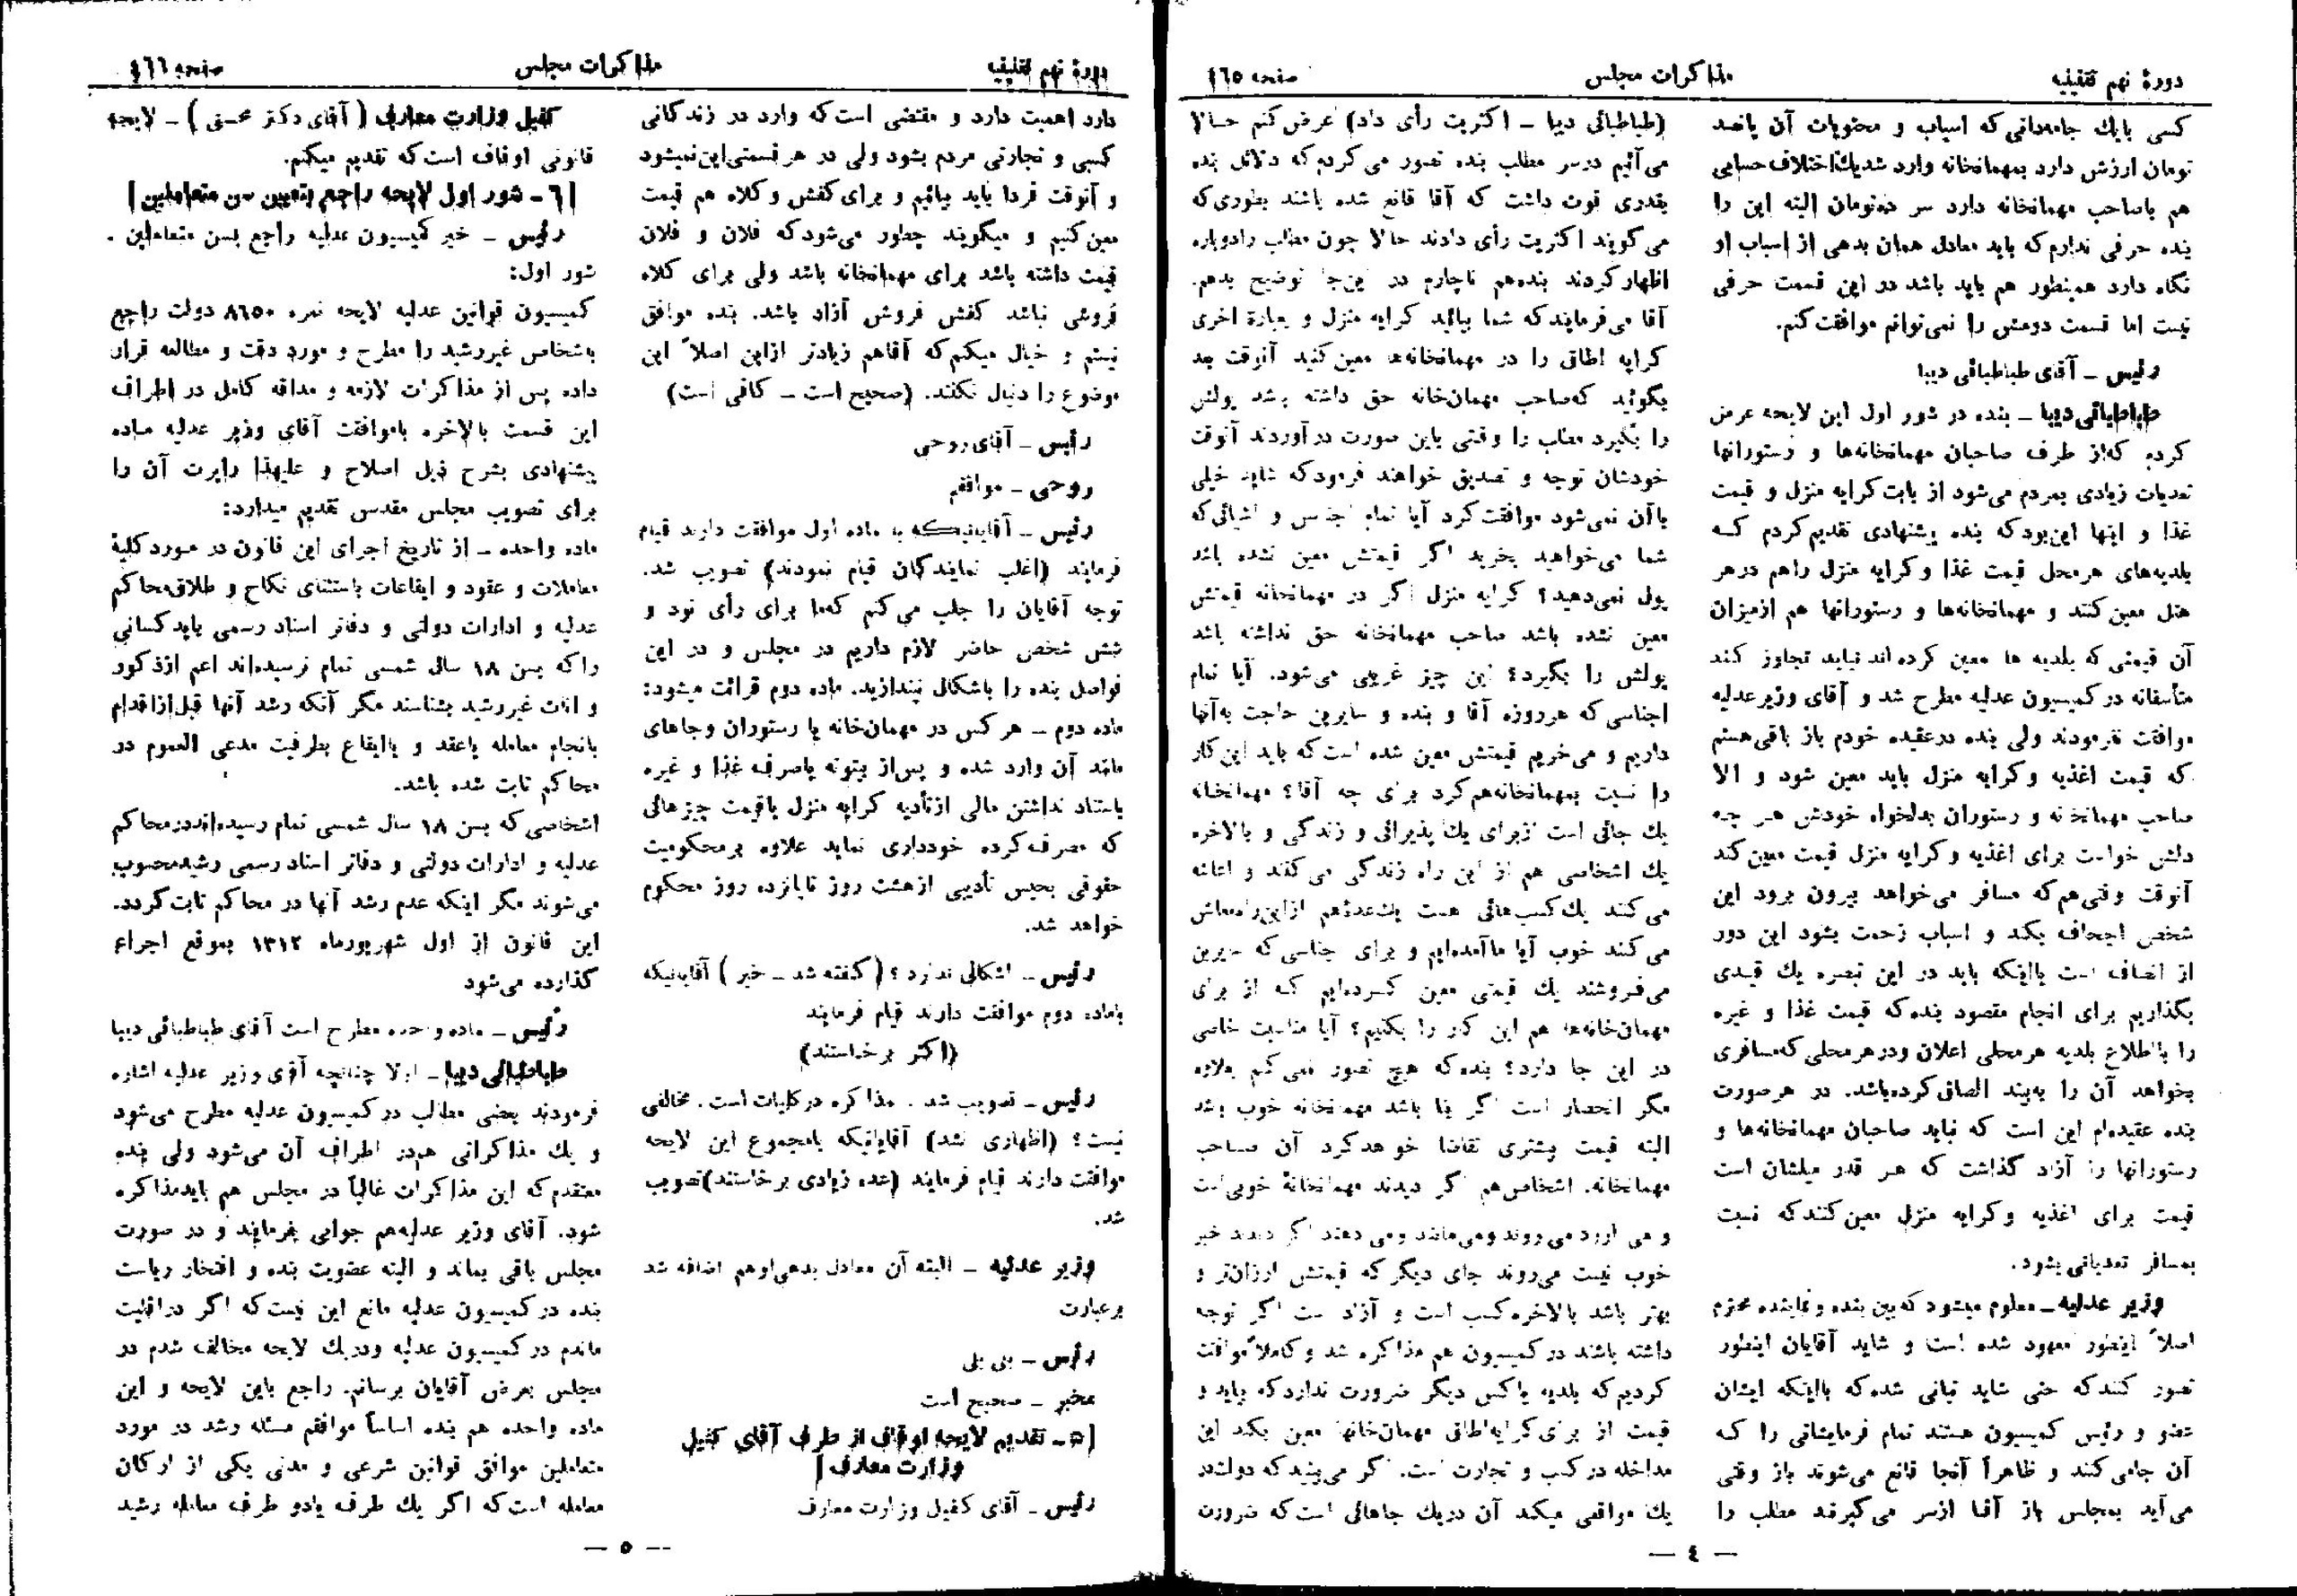 دورهٔ نهم تقنینیه
مذاکرات مجلس
صفحه ٤٦٥
کسی بایك جامه‌دانی که اسباب و محتویات آن پانصد
تومان ارزش دارد بمهمانخانه وارد شد یك اختلاف حسابی
هم باصاحب مهمانخانه دارد سر ده‌تومان البته این را
بنده حرفی ندارم که باید معادل همان بدهی از اسباب او
نگاه دارد همینطور هم باید باشد در این قسمت حرفی
نیست اما قسمت دومش را نمی‌توانم موافقت کنم.
رئیس ـ آقای طباطبائی دیبا
طباطبائی دیبا ـ بنده در شور اول این لایحه عرض
کردم که از طرف صاحبان مهمانخانه‌ها و رستورانها
تعدیات زیادی بمردم می‌شود از بابت کرایه منزل و قیمت
غذا و اینها این‌بود که بنده پیشنهادی تقدیم کردم کـه
بلدیه‌های هرمحل قیمت غذا و کرایه منزل را هم درهر
هتل معین کنند و مهمانخانه‌ها و رستورانها هم ازمیزان
آن قیمتی که بلدیه ها معین کرده اند نباید تجاوز کند
متأسفانه در کمیسیون عدلیه مطرح شد و آقای وزیر عدلیه
موافقت نفرمودند ولی بنده درعقیده خودم باز باقی‌هستم
که قیمت اغذیه و کرایه منزل باید معین شود و الا
صاحب مهمانخانه و رستوران بدلخواه خودش هـر چـه
دلش خواست برای اغذیه و کرایه منزل قیمت معین کند
آنوقت وقتی هم که مسافر می‌خواهد بیرون برود این
شخص اجحاف بکند و اسباب زحمت بشود این دور
از انصاف است یا اینکه باید در این تبصره یك قیـدی
بگذاریم برای انجام مقصود بنده که قیمت غذا و غیره
را بااطلاع بلدیه هرمحلی اعلان ودرهرمحلی که‌مسافری
بخواهد آن را به‌بیند الصاق کرده‌باشد. در هرصورت
بنده عقیده‌ام این است که نباید صاحبان مهمانخانه‌ها و
رستورانها را آزاد گذاشت که هـر قدر میلشان است
قیمت برای اغذیه و کرایه منزل معین کنند که نسبت
بمسافر تعدیاتی بشود.
وزیر عدلیه ـ معلوم میشود که بین بنده و نماینده محترم
اصلاً اینطور معهود شده است و شاید آقایان اینطور
تصور کنند که حتی شاید تبانی شده که بااینکه ایشان
عضو و رئیس کمیسیون هستند تمام فرمایشاتی را کـه
آن جا می‌کنند و ظاهراً آنجا قانع می‌شوند باز وقتی
می‌آید بمجلس باز آقـا ازسر می‌گیرند مطلب را
(طباطبائی دیبا ـ اکثریت رأی داد) عرض کنم حـالا
می‌آئیم درسر مطلب بنده تصور می‌کردم که دلائل بنده
بقدری قوت داشت که آقا قانع شده باشند بطوری که
می‌گویند اکثریت رأی دادند حالا چون مطلب رادوباره
اظهار کردند بنده‌هم ناچارم در این‌جا توضیح بدهم.
آقا می‌فرمایند که شما بیائید کرایه منزل و بعبارة اخری
کرایه اطاق را در مهمانخانه‌ها معین کنید آنوقت بعد
بگوئید که‌صاحب مهمان‌خانه حق داشته باشد پولش
را بگیرد مطلب را وقتی باین صورت درآوردند آنوقت
خودشان توجه و تصدیق خواهند فرمود که شاید خیلی
باآن نمی‌شود موافقت کرد آیا تمام اجناس و اشیائی که
شما می‌خواهید بخرید اگر قیمتش معین نشده باشد
پول نمی‌دهید؟ کرایه منزل اگر در مهمانخانه قیمتش
معین نشده باشد صاحب مهمانخانه حق نداشته باشد
پولش را بگیرد؟ این چیز غریبی می‌شود. آیا تمام
اجناسی که هرروزه آقا و بنده و سایرین حاجت به‌آنها
داریم و می‌خریم قیمتش معین شده است که باید این کار
را نسبت بمهمانخانه‌هم کرد برای چه آقا؟ مهمانخانه
یك جائی است ازبرای یك پذیرائی و زندگی و بالاخره
یك اشخاصی هم از این راه زندگی می‌کنند و اعاشه
می‌کنند یك کسب‌هائی هست یك‌عده‌هم ازاین‌راه‌معاش
می‌کنند خوب آیا ماآمده‌ایم و برای اجناسی که سایرین
می‌فروشند یك قیمتی معین کـرده‌ایم کـه از برای
مهمان‌خانه‌ها هم این کار را بکنیم؟ آیا مناسبت خاصی
در این جا دارد؟ بنده که هیچ تصور نمی‌کنم بعلاوه
مگر انحصار است اگر بنا باشد مهمانخانه خوب باشد
البته قیمت بیشتری تقاضا خواهد کرد آن صـاحب
مهمانخانه. اشخاص هم اگر دیدند مهمانخانهٔ خوبی‌است
و می ارزد می‌روند و می‌مانند و می دهند اگر دیدند خیر
خوب نیست می‌روند جای دیگر که قیمتش ارزان‌تر و
بهتر باشد بالاخره کسب است و آزاد است اگر توجه
داشته باشند در کمیسیون هم مذاکره شد و کاملاً موافقت
کردیم که بلدیه یا کس دیگر ضرورت ندارد که بیاید و
قیمت از برای کرایه‌اطاق مهمان‌خانها معین بکند این
مداخله در کسب و تجارت است. اگر می‌بینید که دولت در
یك مواقعی میکند آن دریك جاهائی است که ضرورت
ـ ٤ ـ
دورهٔ نهم تقنینیه
مذاکرات مجلس
صفحه ٤٦٦
دارد اهمیت دارد و مقتضی است که وارد در زندگانی
کسبی و تجارتی مردم بشود ولی در هر قسمتی‌این‌نمیشود
و آنوقت فردا باید بیائیم و برای کفش و کلاه هم قیمت
معین کنیم و میگویند چطور می‌شود که فلان و فلان
قیمت داشته باشد برای مهمانخانه باشد ولی برای کلاه
فروشی نباشد کفش فروش آزاد باشد. بنده موافق
نیستم و خیال میکنم که آقاهم زیادتر ازاین اصلاً این
موضوع را دنبال نکنند. (صحیح است ـ کافی است)
رئیس ـ آقای روحی
روحی ـ موافقم
رئیس ـ آقایانیکه با ماده اول موافقت دارند قیام
فرمایند (اغلب نمایندگان قیام نمودند) تصویب شد.
توجه آقایان را جلب می‌کنم که‌ما برای رأی نود و
شش شخص حاضر لازم داریم در مجلس و در این
فواصل بنده را باشکال نیندازید. ماده دوم قرائت میشود:
ماده دوم ـ هر کس در مهمان‌خانه یا رستوران و جاهای
مانند آن وارد شده و پس‌از بیتوته یاصرف غذا و غیره
باستناد نداشتن مالی ازتأدیه کرایه منزل یاقیمت چیزهائی
که مصرف کرده خودداری نماید علاوه برمحکومیت
حقوقی بحبس تأدیبی ازهشت روز تاپانزده روز محکوم
خواهد شد.
رئیس ـ اشکالی ندارد؟ (گفته شد ـ خیر) آقایانیکه
باماده دوم موافقت دارند قیام فرمایند
(اکثر برخاستند)
رئیس ـ تصویب شد. مذاکره در کلیات است. مخالفی
نیست؟ (اظهاری نشد) آقایانیکه بامجموع این لایحه
موافقت دارند قیام فرمایند (عده زیادی برخاستند) تصویب
شد.
وزیر عدلیه ـ البته آن معادل بدهی‌او‌هم اضافه شد
برعبارت
رئیس ـ بلی بلی
مخبر ـ صحیح است
[٥ ـ تقدیم لایحه اوقاف از طرف آقای کفیل
وزارت معارف]
رئیس ـ آقای کفیل وزارت معارف
کفیل وزارت معارف (آقای دکتر محسنی) ـ لایحه
قانونی اوقاف است که تقدیم میکنم.
[٦ ـ شور اول لایحه راجع بتعیین سن متعاملین]
رئیس ـ خبر کمیسیون عدلیه راجع بسن متعاملین.
شور اول:
کمیسیون قوانین عدلیه لایحه نمره ٨٦٥٠ دولت راجع
باشخاص غیررشید را مطرح و مورد دقت و مطالعه قرار
داده پس از مذاکرات لازمه و مداقه کامل در اطراف
این قسمت بالاخره باموافقت آقای وزیر عدلیه مـاده
پیشنهادی بشرح ذیل اصلاح و علیهذا راپرت آن را
برای تصویب مجلس مقدس تقدیم میدارد:
ماده واحده ـ از تاریخ اجرای این قانون در مـورد کلیهٔ
معاملات و عقود و ایقاعات باستثنای نکاح و طلاق محاکم
عدلیه و ادارات دولتی و دفاتر اسناد رسمی باید کسانی
را که بسن ١٨ سال شمسی تمام نرسیده‌اند اعم ازذکور
و اناث غیررشید بشناسند مگر آنکه رشد آنها قبل‌ازاقدام
بانجام معامله یاعقد و یاایقاع بطرفیت مدعی العموم در
محاکم ثابت شده باشد.
اشخاصی که بسن ١٨ سال شمسی تمام رسیده‌انددرمحاکم
عدلیه و ادارات دولتی و دفاتر اسناد رسمی رشیدمحسوب
می‌شوند مگر اینکه عدم رشد آنها در محاکم ثابت گردد.
این قانون از اول شهریورماه ١٣١٢ بموقع اجراء
گذارده می‌شود
رئیس ـ ماده واحده مطرح است آقای طباطبائی دیبا
طباطبائی دیبا ـ اولا چنانچه آقای وزیر عدلیه اشاره
فرمودند بعضی مطالب در کمیسیون عدلیه مطرح می‌شود
و یك مذاکراتی هم‌در اطراف آن می‌شود ولی بنده
معتقدم که این مذاکرات غالباً در مجلس هم بایدمذاکره
شود. آقای وزیر عدلیه‌هم جوابی بفرمایند و در صورت
مجلس باقی بماند و البته عضویت بنده و افتخار ریاست
بنده در کمیسیون عدلیه مانع این نیست که اگر دراقلیت
ماندم در کمیسیون عدلیه ودریك لایحه مخالف شدم در
مجلس بعرض آقایان برسانم. راجع باین لایحه و این
ماده واحده هم بنده اساساً موافقم مسئله رشد در مورد
متعاملین موافق قوانین شرعی و مدنی یکی از ارکان
معامله است که اگر یك طرف یادو طرف معامله رشید
ـ ٥ ـ